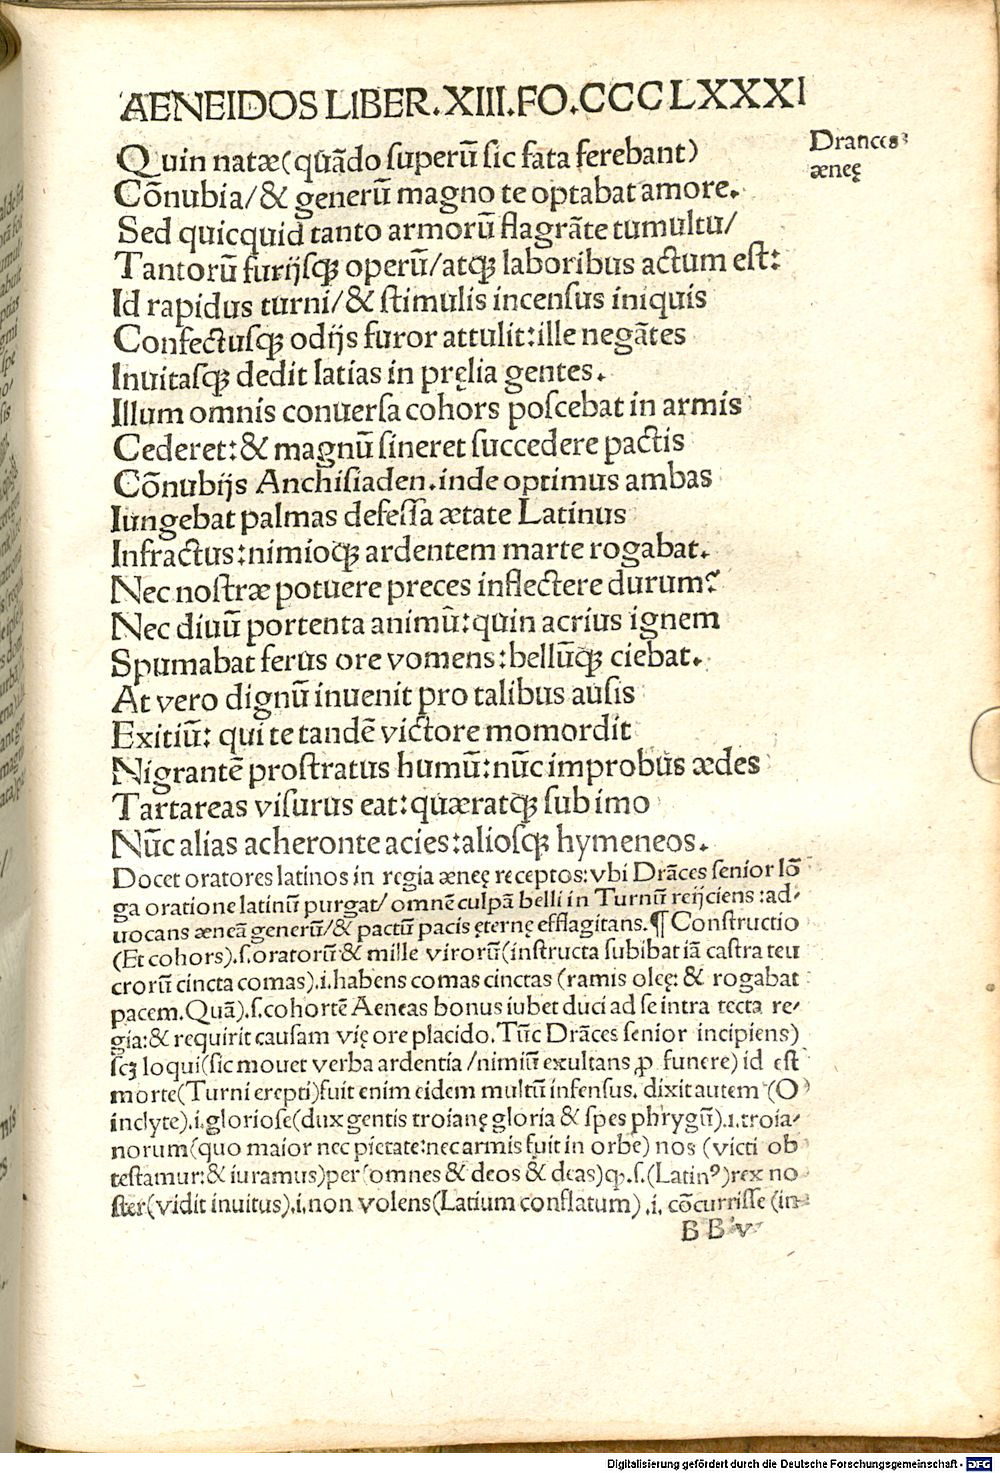 AENEIDOS LIBER.XIII.FO.CCCLXXXI
Drances
æneę
Quin natæ(quādo superū sic fata ferebant)
Cōnubia/& generū magno te optabat amore.
Sed quicquid tanto armorū flagrāte tumultu/
Tantorū furijsqꝫ operū/atqꝫ laboribus actum est:
Id rapidus turni/& stimulis incensus iniquis
Confectusqꝫ odijs furor attulit:ille negātes
Inuitasqꝫ dedit latias in pręlia gentes.
Illum omnis conuersa cohors poscebat in armis
Cederet:& magnū sineret succedere pactis
Cōnubijs Anchisiaden.inde optimus ambas
Iungebat palmas defessa ætate Latinus
Infractus:nimioqꝫ ardentem marte rogabat.
Nec nostræ potuere preces inflectere durum?
Nec diuū portenta animū:quin acrius ignem
Spumabat ferus ore vomens:bellūqꝫ ciebat.
At vero dignū inuenit pro talibus ausis
Exitiū: qui te tandē victore momordit
Nigrantē prostratus humū:nūc improbus ædes
Tartareas visurus eat:quæratqꝫ sub imo
Nūc alias acheronte acies:aliosqꝫ hymeneos.
Docet oratores latinos in regia æneę receptos:vbi Drāces senior lō
ga oratione latinū purgat/ omnē culpā belli in Turnū reijciens :ad-
uocans æneā generū/& pactū pacis ęternę efflagitans.¶ Constructio
(Et cohors).s.oratorū & mille virorū(instructa subibat iā castra teu
crorū cincta comas).i.habens comas cinctas (ramis oleę: & rogabat
pacem.Quā).s.cohortē Aeneas bonus iubet duci ad se intra tecta re-
gia:& requirit causam vię ore placido.Tūc Drāces senior incipiens)
scꝫ loqui(sic mouet verba ardentia /nimiū exultans ꝓ funere) id est
morte(Turni erepti)fuit enim eidem multū infensus. dixit autem (O
inclyte).i.gloriose(dux gentis troianę gloria & spes phrygū).i.troia-
norum(quo maior nec pietate:nec armis fuit in orbe) nos (victi ob
testamur:& iuramus)per(omnes & deos & deas)ꝙ.s.(Latinꝰ)rex no
ster(vidit inuitus).i.non volens(Latium conflatum) .i. cōcurrisse (in-
BB v
Digitalisierung gefördert durch die Deutsche Forschungsgemeinschaft - DFG